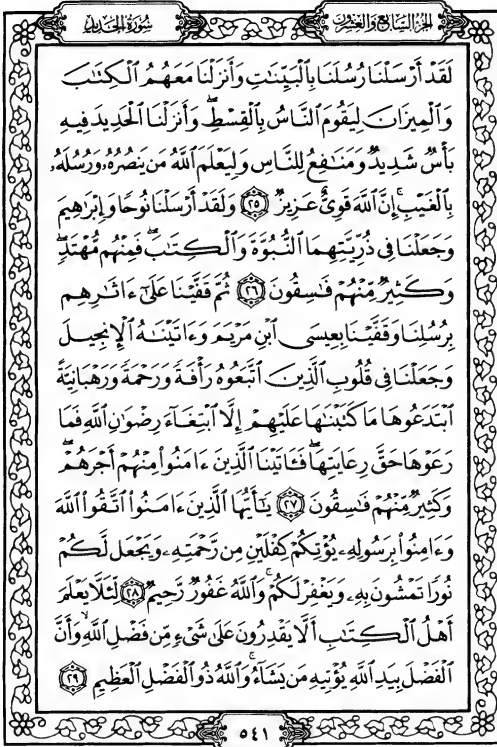 سُورَةُ الحَدِيدِ
الجُزْءُ السَّابِعُ وَالعِشْرُونَ
لَقَدْ أَرْسَلْنَا رُسُلَنَا بِٱلْبَيِّنَٰتِ وَأَنزَلْنَا مَعَهُمُ ٱلْكِتَٰبَ
وَٱلْمِيزَانَ لِيَقُومَ ٱلنَّاسُ بِٱلْقِسْطِۖ وَأَنزَلْنَا ٱلْحَدِيدَ فِيهِ
بَأْسٌ شَدِيدٌ وَمَنَٰفِعُ لِلنَّاسِ وَلِيَعْلَمَ ٱللَّهُ مَن يَنصُرُهُۥ وَرُسُلَهُۥ
بِٱلْغَيْبِۚ إِنَّ ٱللَّهَ قَوِىٌّ عَزِيزٌ ٢٥ وَلَقَدْ أَرْسَلْنَا نُوحًا وَإِبْرَٰهِيمَ
وَجَعَلْنَا فِى ذُرِّيَّتِهِمَا ٱلنُّبُوَّةَ وَٱلْكِتَٰبَۖ فَمِنْهُم مُّهْتَدٍۖ
وَكَثِيرٌ مِّنْهُمْ فَٰسِقُونَ ٢٦ ثُمَّ قَفَّيْنَا عَلَىٰٓ ءَاثَٰرِهِم
بِرُسُلِنَا وَقَفَّيْنَا بِعِيسَى ٱبْنِ مَرْيَمَ وَءَاتَيْنَٰهُ ٱلْإِنجِيلَ
وَجَعَلْنَا فِى قُلُوبِ ٱلَّذِينَ ٱتَّبَعُوهُ رَأْفَةً وَرَحْمَةً وَرَهْبَانِيَّةً
ٱبْتَدَعُوهَا مَا كَتَبْنَٰهَا عَلَيْهِمْ إِلَّا ٱبْتِغَآءَ رِضْوَٰنِ ٱللَّهِ فَمَا
رَعَوْهَا حَقَّ رِعَايَتِهَاۖ فَـَٔاتَيْنَا ٱلَّذِينَ ءَامَنُوا۟ مِنْهُمْ أَجْرَهُمْۖ
وَكَثِيرٌ مِّنْهُمْ فَٰسِقُونَ ٢٧ يَٰٓأَيُّهَا ٱلَّذِينَ ءَامَنُوا۟ ٱتَّقُوا۟ ٱللَّهَ
وَءَامِنُوا۟ بِرَسُولِهِۦ يُؤْتِكُمْ كِفْلَيْنِ مِن رَّحْمَتِهِۦ وَيَجْعَل لَّكُمْ
نُورًا تَمْشُونَ بِهِۦ وَيَغْفِرْ لَكُمْۚ وَٱللَّهُ غَفُورٌ رَّحِيمٌ ٢٨ لِّئَلَّا يَعْلَمَ
أَهْلُ ٱلْكِتَٰبِ أَلَّا يَقْدِرُونَ عَلَىٰ شَىْءٍ مِّن فَضْلِ ٱللَّهِۙ وَأَنَّ
ٱلْفَضْلَ بِيَدِ ٱللَّهِ يُؤْتِيهِ مَن يَشَآءُۚ وَٱللَّهُ ذُو ٱلْفَضْلِ ٱلْعَظِيمِ ٢٩
٥٤١